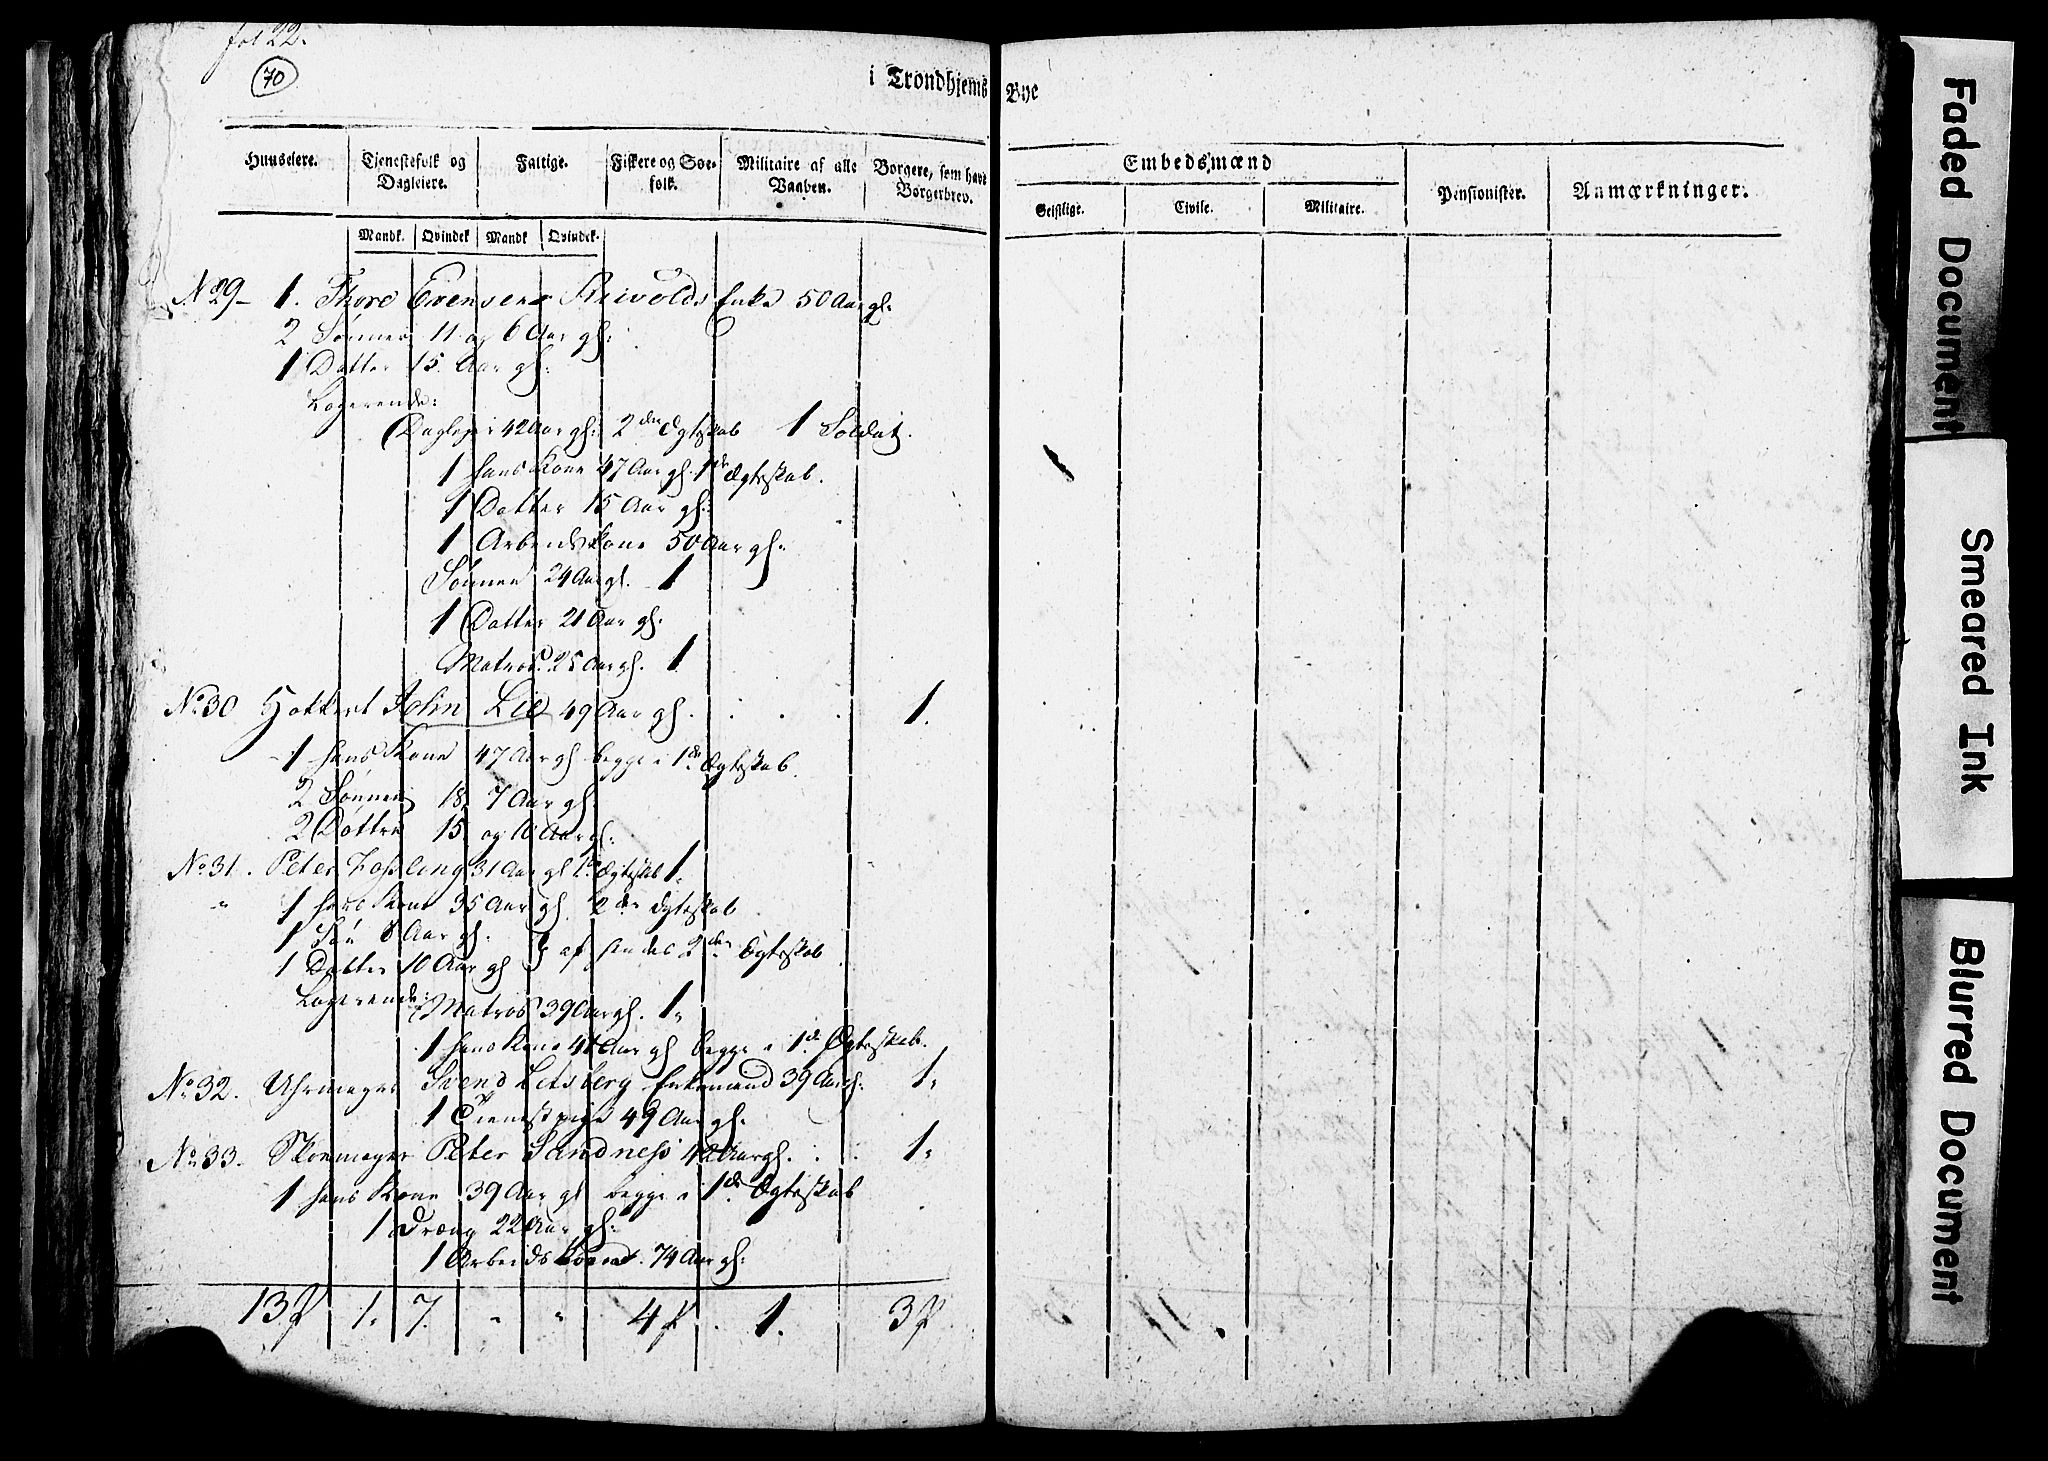 fol 22.
70
i Trondhjems Bye
Huuseiere.
Tjenestefolk og Dagleiere.
Fattige.
Fiskere og Søe-
folk.
Militaire af alle
Vaaben.
Borgere, som have
Borgerbrev.
Embedsmænd
Geistlige.
Civile.
Militaire.
Pensionister.
Anmærkninger.
Mandk. Qvindek Mandk Qvindek.
No 29 - 1. Thore Evensen Enke 50 Aar gl:
2 Sønner 11 og 6 Aar gl:
1 Datter 15. Aar gl:
Logerende:
Dagleier 42 Aar gl: 2den Ægteskab 1 Soldat.
1 hans Kone 47 Aar gl. 1de Ægteskab.
1 Datter 15 Aar gl:
1 Arbeidskone 50 Aar gl:
Sønnen 24 Aar gl. 1
1 Datter 21 Aar gl:
Matros. 25 Aar gl. 1
No 30 John Lie 49 Aar gl. 1.
1 hans Kone 47 Aar gl begge i 1de Ægteskab.
2 Sønner 18. 7 Aar gl.
2 Døttre 15 og 10 Aar gl:
No 31. Peter 31 Aar gl 1de Ægteskab 1.
" 1 hans Kone 35 Aar gl. 2den Ægteskab
1 Søn 8 Aar gl:
1 Datter 10 Aar gl } af hendes 2den Ægteskab
Logerende: Matros 39 Aar gl. 1.
1 hans Kone Aar gl begge i 1de Ægteskab.
No 32. Uhrmager Svend Enkemand 39 Aar gl: 1.
1 Tienestpige 49 Aar gl:
No 33. Skoemager Peter Sandness 42 Aar gl. 1.
1 hans Kone 39 Aar gl begge i 1de Ægteskab
1 Dreng 22 Aar gl:
1 Arbeidskone 74 Aar gl:
13 1. 7. " " 4 1. 3
Faded Document
Smeared Ink
Blurred Document